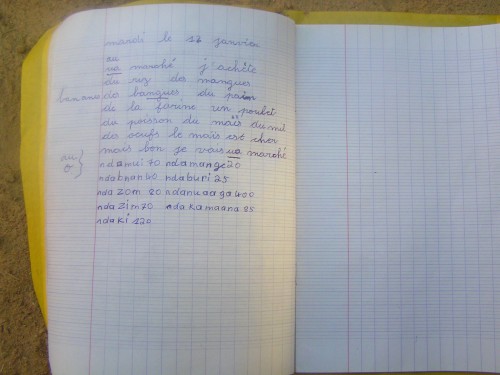 mardi le 17 janvier
au
ua marché j'achète
du riz des mangues
banane de bangues du pain
de la farine un poulet
du poisson du maïs du mil
do oeufs le maïs est cher
mais bon je vais ua marché
au
o
ndamui 40 ndamange 20
ndabnan 40 ndaburi 25
nda zom 80 ndanuaaga 400
nda zim 70 nda kamaana 85
nda ki 120